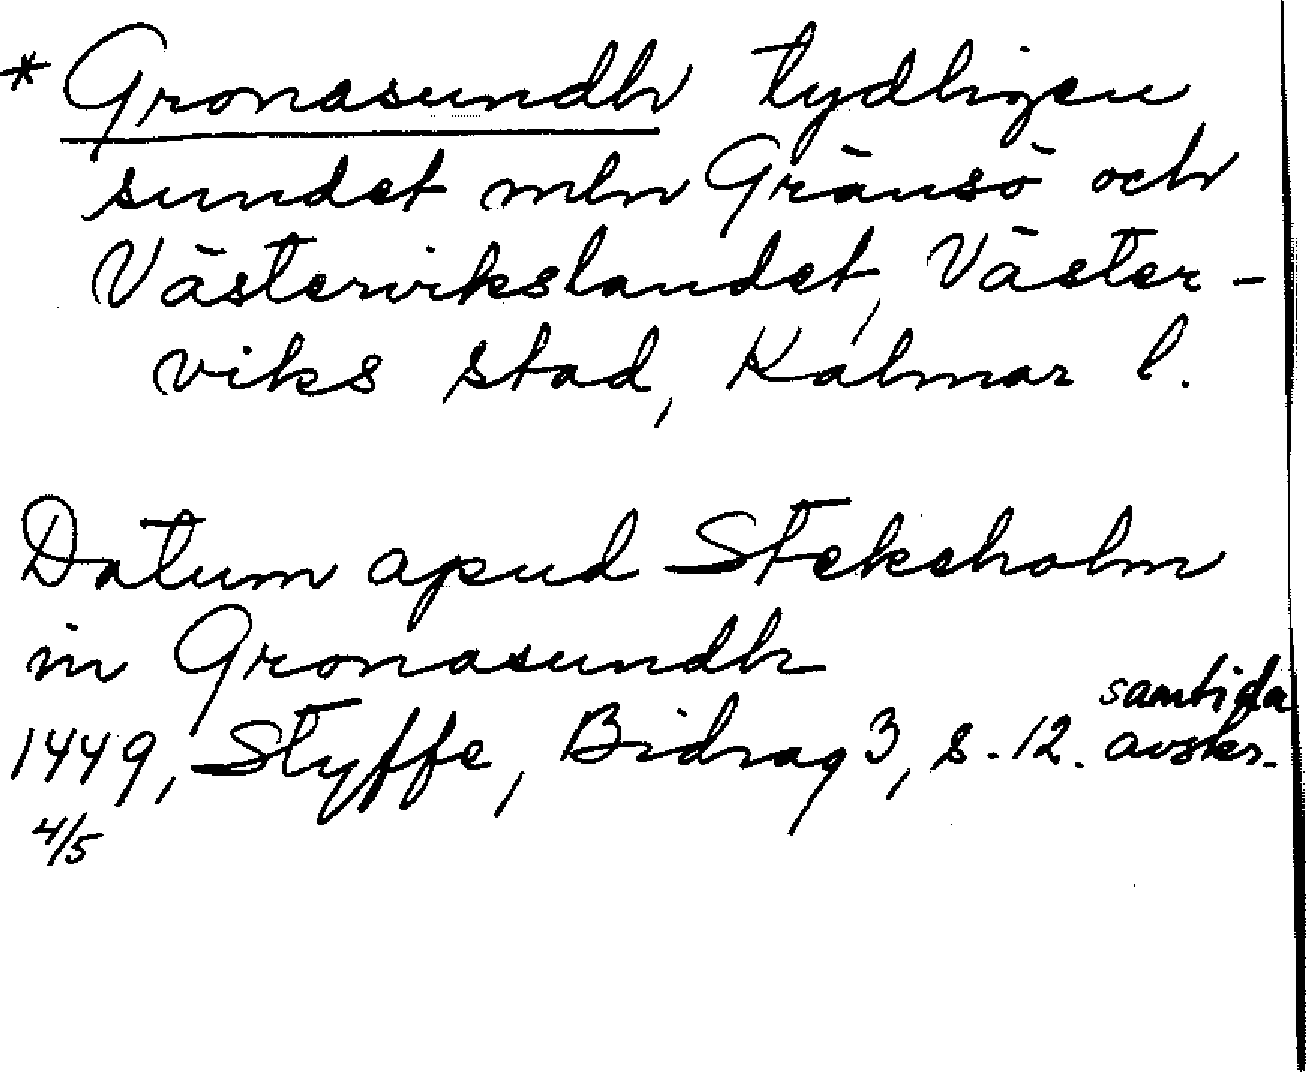 * Gronasundh tydligen
sundet mln Gränsö och
Västervikslandet, Väster-
viks stad, Kalmar l.
Datum apud Stekeholm
in Gronasundh
samtida
1449, Styffe, Bidrag 3, s. 12. avskr.
4/5